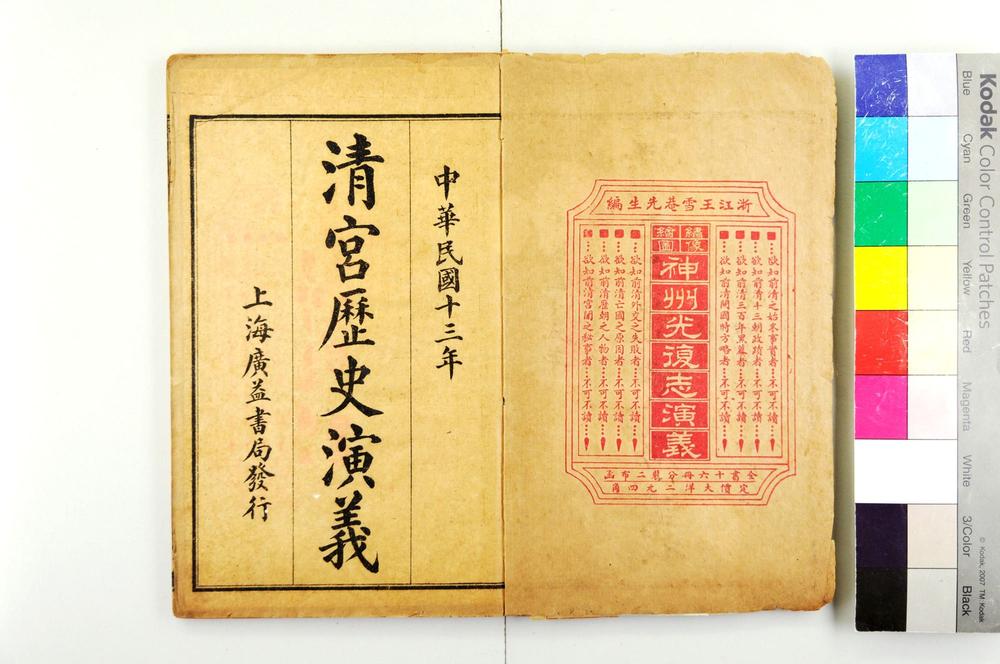 中華民國十三年
清宮歷史演義
上海廣益書局發行
浙江王雪菴先生編
繡像
繪圖
神州光復志演義
■欲知前清之始末事實者…不可不讀…
■欲知前清十三朝政蹟者…不可不讀…
■欲知前清三百年黑幕者…不可不讀…
■欲知前清開國時方略者…不可不讀…
■欲知前清外交之失敗者…不可不讀…
■欲知前清亡國之原因者…不可不讀…
■欲知前清歷朝之人物者…不可不讀…
■欲知前清宮闈之秘事者…不可不讀…
全書十六冊分裝二布函
定價大洋二元四角
Kodak Color Control Patches
Blue
Cyan
Green
Yellow
Red
Magenta
White
3/Color
Black
© Kodak, 2007 TM: Kodak